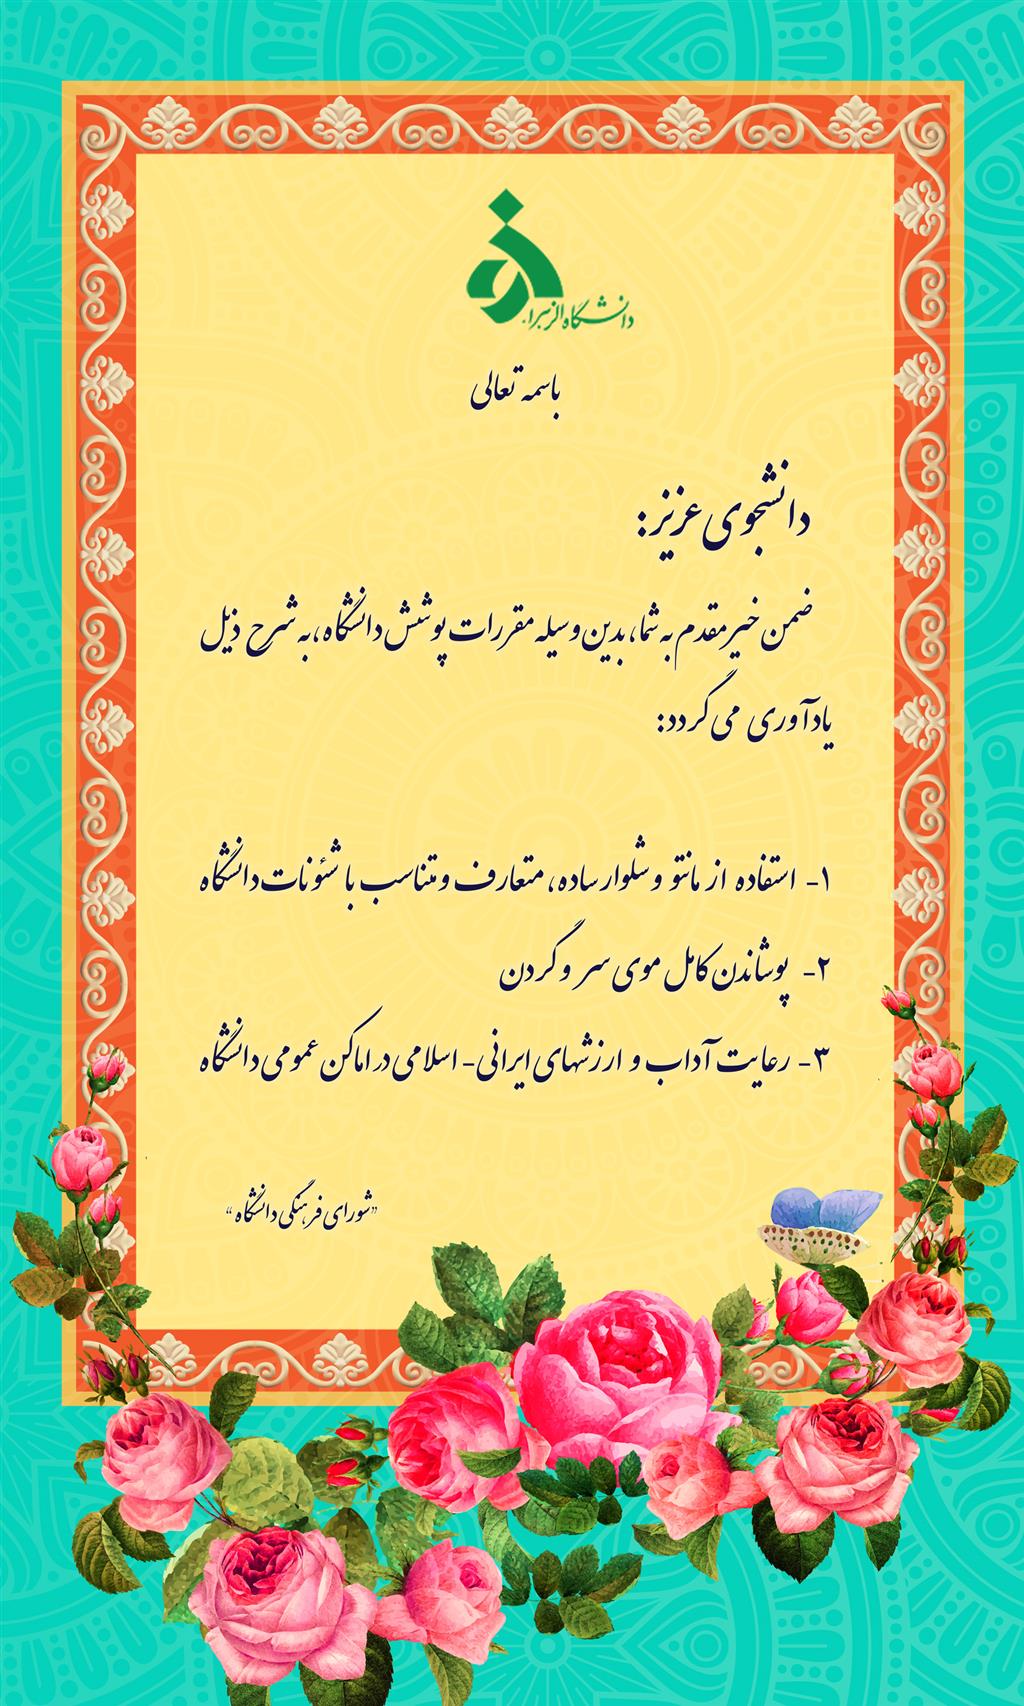 دانشگاه الزهرا
باسمه تعالی
دانشجوی عزیز:
ضمن خیرمقدم به شما، بدین وسیله مقررات پوشش دانشگاه، به شرح ذیل
یادآوری می گردد:
۱- استفاده از مانتو و شلوار ساده، متعارف و متناسب با شئونات دانشگاه
۲- پوشاندن کامل موی سر و گردن
۳- رعایت آداب و ارزشهای ایرانی- اسلامی در اماکن عمومی دانشگاه
”شورای فرهنگی دانشگاه“